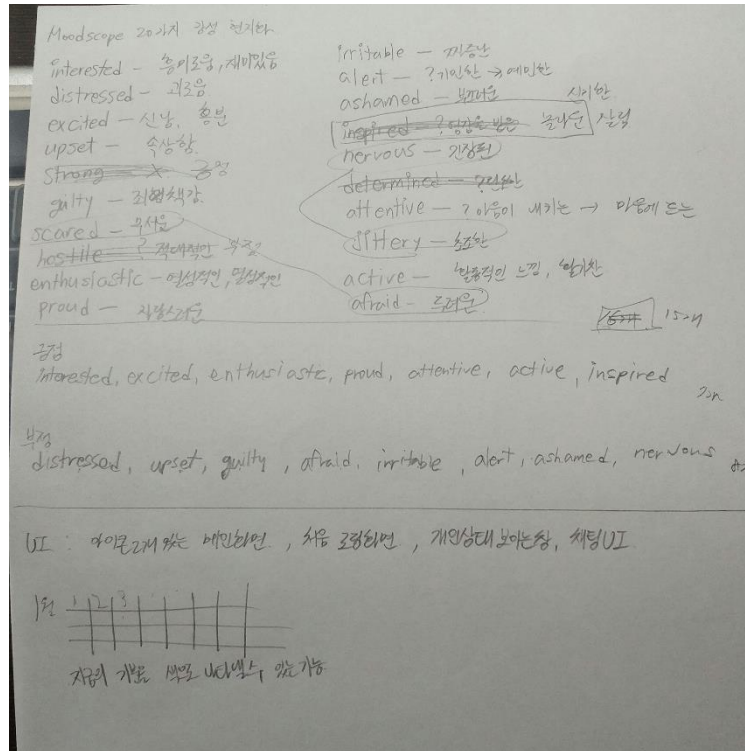 Moodscope 20가지 감정 한가지
interested - 흥미로움, 재미있음
distressed - 괴로움
excited - 신남, 흥분
upset - 속상함
strong - X 긍정
guilty - 죄책감
scared - 무서운
hostile - ? 적대적인 부정
enthusiastic - 열성적인, 열정적인
proud - 자랑스러운
irritable - 짜증난
alert - ? 기민한 → 예민한
ashamed - 부끄러운
신기한
inspired - ? 영감을 받은 놀라운
nervous - 긴장된
determined - ? 단호한
attentive - ? 마음이 내키는 → 마음에 드는
Jittery - 초조한
active - 활동적인 느낌, 활기찬
afraid - 두려운
15개
긍정
interested, excited, enthusiastic, proud, attentive, active, inspired
7개
부정
distressed, upset, guilty, afraid, irritable, alert, ashamed, nervous
UI : 아이콘 2개 있는 메인화면, 처음 로딩화면, 개인상태 보이는 창, 채팅 UI
1월 1 2 3
지금의 기분을 색으로 나타낼 수 있는 기능